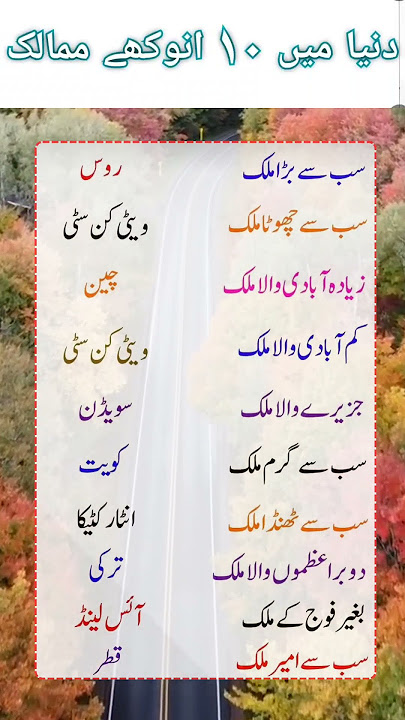 دنیا میں ۱۰ انوکھے ممالک
سب سے بڑا ملک روس
سب سے چھوٹا ملک ویٹی کن سٹی
زیادہ آبادی والا ملک چین
کم آبادی والا ملک ویٹی کن سٹی
جزیرے والا ملک سویڈن
سب سے گرم ملک کویت
سب سے ٹھنڈا ملک انٹار کٹیکا
دو براعظموں والا ملک ترکی
بغیر فوج کے ملک آئس لینڈ
سب سے امیر ملک قطر